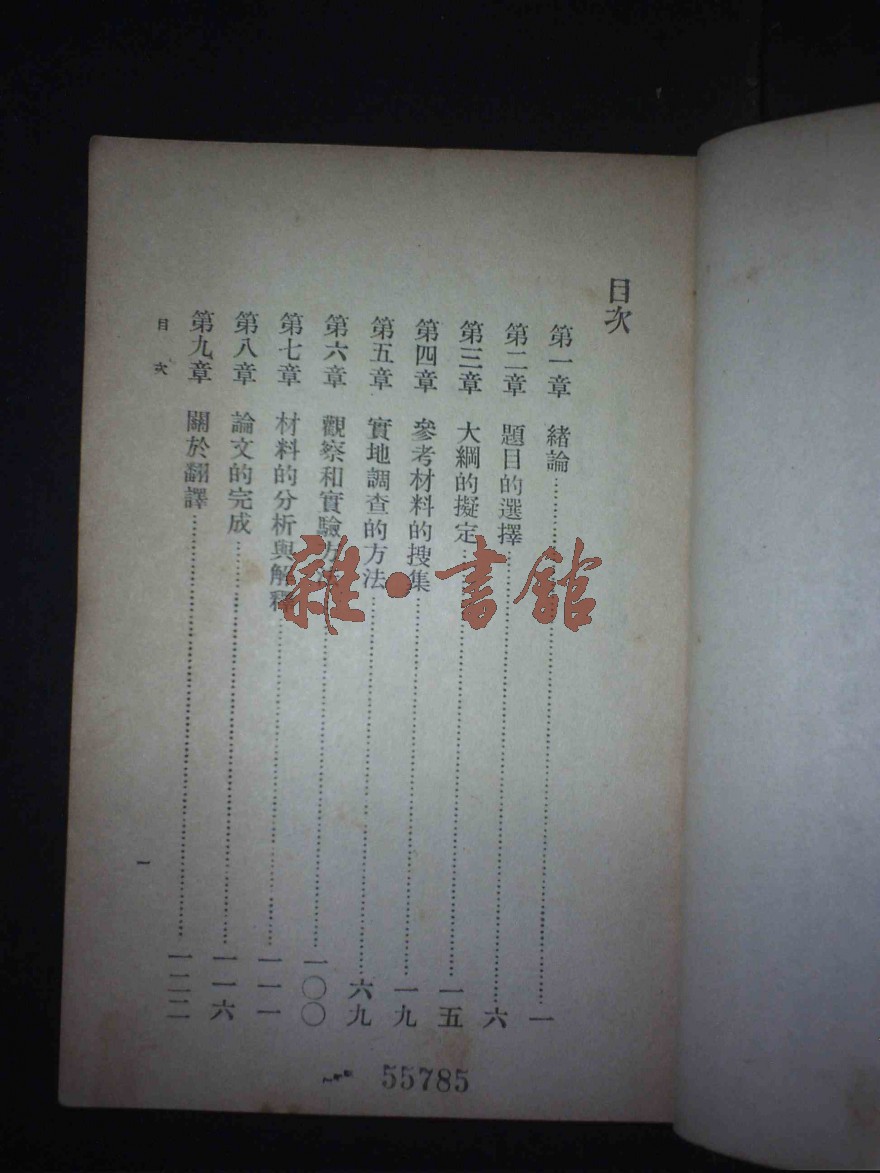 目次
第一章 緒論……一
第二章 題目的選擇……六
第三章 大綱的擬定……一五
第四章 參考材料的搜集……一九
第五章 實地調查的方法……六九
第六章 觀察和實驗方法……一〇〇
第七章 材料的分析與解釋……一一一
第八章 論文的完成……一一六
第九章 關於翻譯……一二二
目次
一
55785
雜·書館